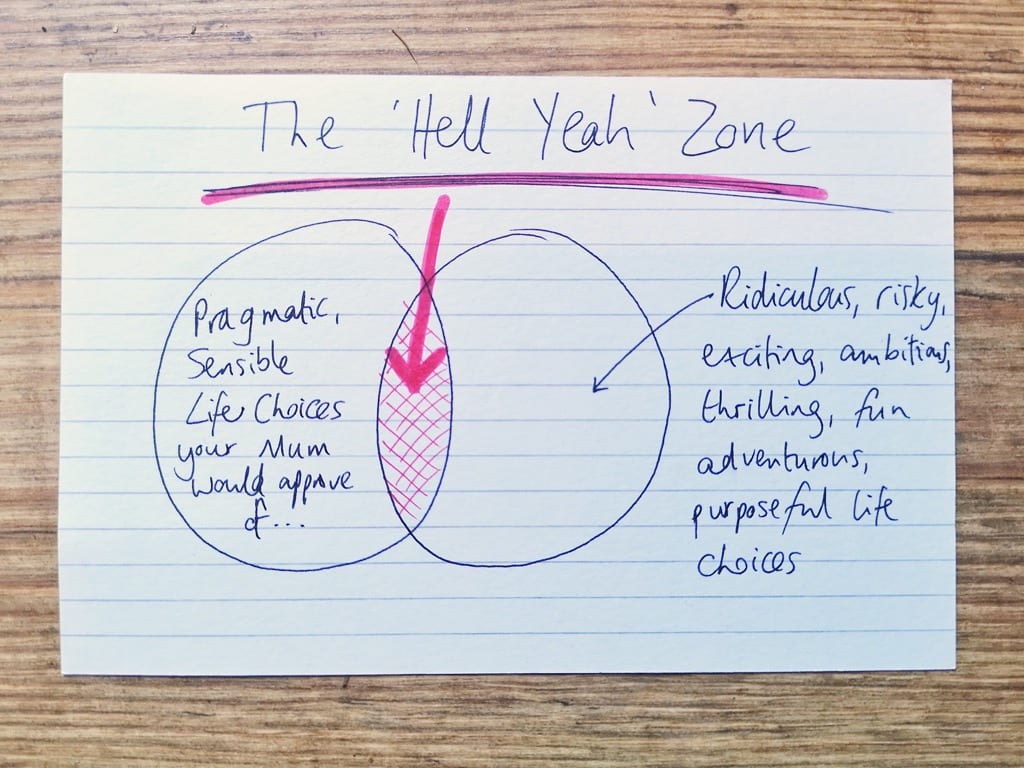 The 'Hell Yeah' Zone
Pragmatic,
Sensible
Life Choices
your Mum
would approve
of...
Ridiculous, risky,
exciting, ambitious,
thrilling, fun
adventurous,
purposeful life
choices